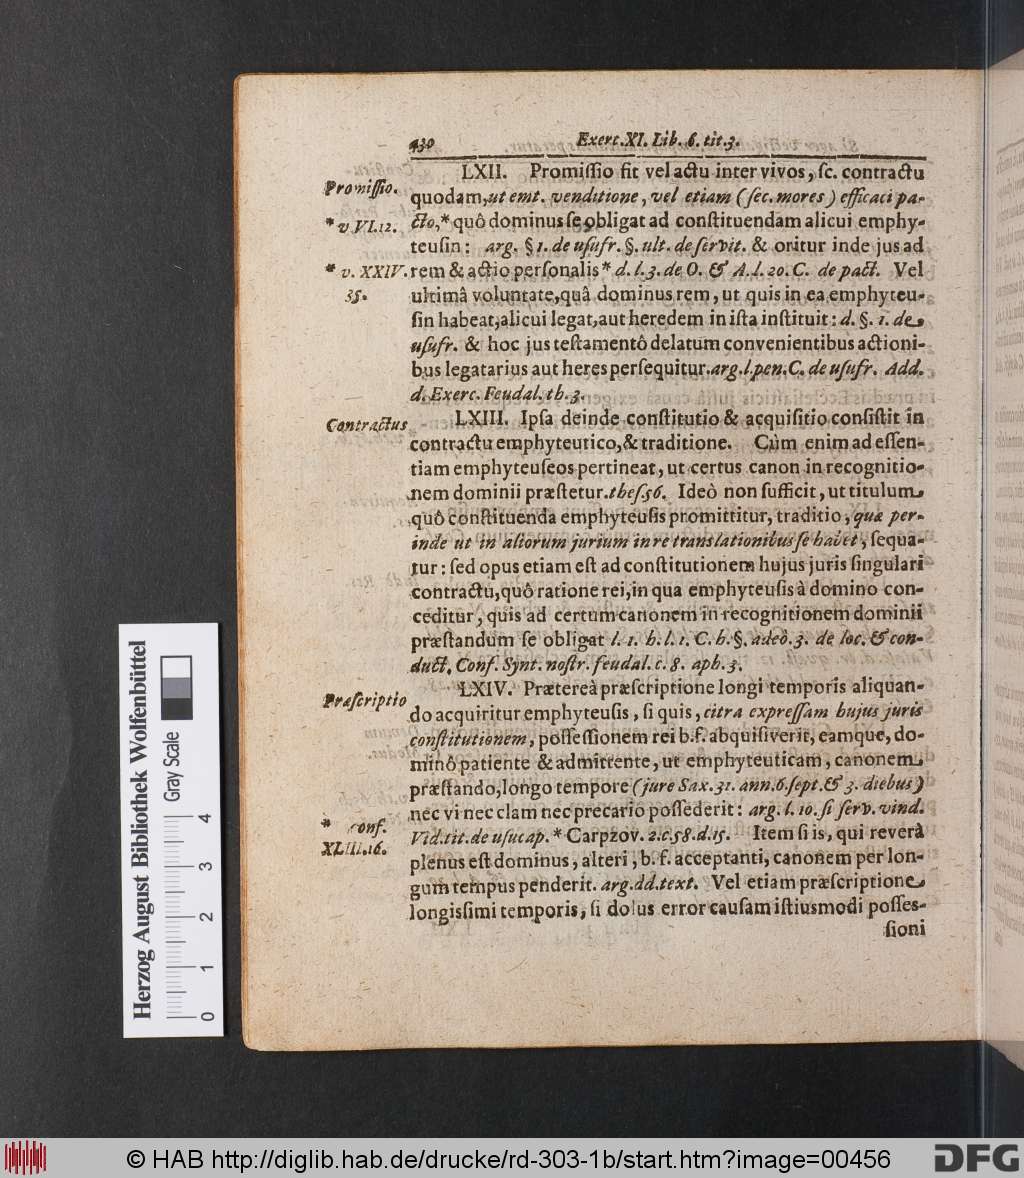 430 Exerc. XI. Lib. 6. tit. 3.
LXII. Promiſſio fit vel actu inter vivos, ſc. contractu
Promiſſio.
quodam, ut emt. venditione, vel etiam (ſec. mores) efficaci pa-
* v. VI. 12.
cto,* quô dominus ſe obligat ad conſtituendam alicui emphy-
teuſin: arg. § 1. de uſufr. §. ult. de ſervit. & oritur inde jus ad
* v. XXIV.
35.
rem & actio perſonalis* d. l. 3. de O. & A. l. 20. C. de pact. Vel
ultimâ voluntate, quâ dominus rem, ut quis in ea emphyteu-
ſin habeat, alicui legat, aut heredem in iſta inſtituit: d. §. 1. de
uſufr. & hoc jus teſtamentô delatum convenientibus actioni-
bus legatarius aut heres perſequitur. arg. l. pen. C. de uſufr. Add.
d. Exerc. Feudal. th. 3.
Contractus
LXIII. Ipſa deinde conſtitutio & acquiſitio conſiſtit in
contractu emphyteutico, & traditione. Cùm enim ad eſſen-
tiam emphyteuſeos pertineat, ut certus canon in recognitio-
nem dominii præſtetur. theſ. 56. Ideò non ſufficit, ut titulum
quô conſtituenda emphyteuſis promittitur, traditio, quæ per-
inde ut in aliorum jurium in re translationibus ſe habet, ſequa-
tur: ſed opus etiam eſt ad conſtitutionem hujus juris ſingulari
contractu, quô ratione rei, in qua emphyteuſis à domino con-
ceditur, quis ad certum canonem in recognitionem dominii
præſtandum ſe obligat l. 1. h. l. 1. C. h. §. adeò. 3. de loc. & con-
duct. Conf. Synt. noſtr. feudal. c. 8. aph. 3.
Præſcriptio
LXIV. Prætereà præſcriptione longi temporis aliquan-
do acquiritur emphyteuſis, ſi quis, citra expreſſam hujus juris
conſtitutionem, poſſeſſionem rei b. f. abquiſiverit, eamque, do-
minô patiente & admittente, ut emphyteuticam, canonem
præſtando, longo tempore (jure Sax. 31. ann. 6. ſept. & 3. diebus)
nec vi nec clam nec precario poſſederit: arg. l. 10. ſi ſerv. vind.
* conf.
XLIII. 16.
Vid. tit. de uſucap. * Carpzov. 2. c. 58. d. 15. Item ſi is, qui reverà
plenus eſt dominus, alteri, b. f. acceptanti, canonem per lon-
gum tempus penderit. arg. dd. text. Vel etiam præſcriptione
longiſſimi temporis, ſi dolus error cauſam iſtiusmodi poſſeſ-
ſioni
Herzog August Bibliothek Wolfenbüttel
Gray Scale
0 1 2 3 4
© HAB http://diglib.hab.de/drucke/rd-303-1b/start.htm?image=00456
DFG